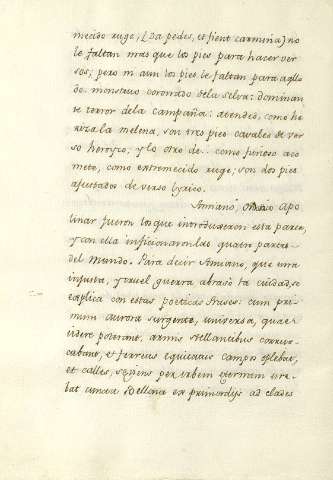 mecido ruge; (Da pedes, et fient carmina) no
le faltan más que los pies para hazer ver
sos; pero ni aun los pies le faltan para aqllo
de monstruo coronado de la selva: dominan
te terror dela campaña: atended, como he
riza la melena, son tres pies cavales de ver
so heroyco; y lo otro de.. como furioso aco
mete, como extremecido ruge; son dos pies
ajustados de verso lyrico.
Amiano, Apo
linar fueron los que introduxeron esta parca,
y con ella inficionaron las quatro partes
del mundo. Para decir Amiano, que una
injusta, y cruel guerra abrasó la ciudad, se
explica con estas poeticas frases: cum pri
mum aurora surgente, universa, quae
videre poterant, armis stellantibus corrus-
cabant, et ferreus equitatus campos opplebat,
et colles, seviens per urbem eternam ure
bat cuncta Bellona ex primordijs ad clades